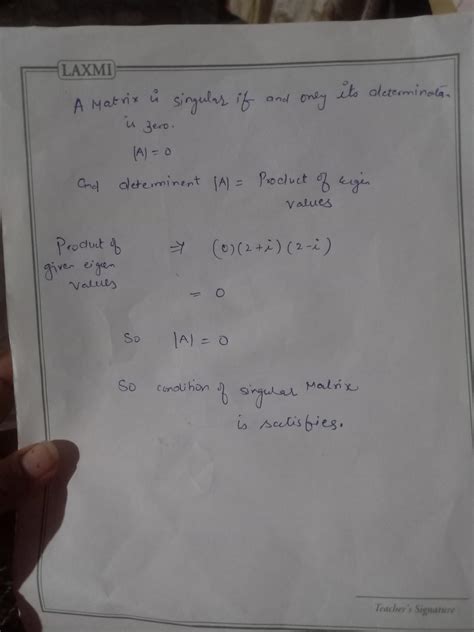 LAXMI
A Matrix is singular if and only its determinata
is zero.
|A| = 0
And determinent |A| = Product of eigen
values
Product of ⇒ (0)(2+i)(2-i)
given eigen
values
= 0
So |A| = 0
So condition of singular Matrix
is satisfies.
Teacher's Signature